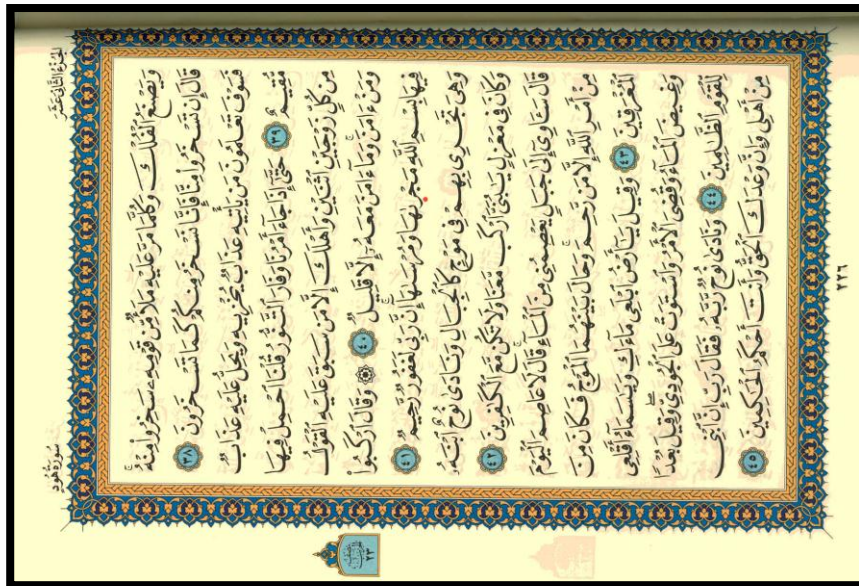 الجزء الثاني عشر
سورة هود
وَيَصْنَعُ ٱلْفُلْكَ وَكُلَّمَا مَرَّ عَلَيْهِ مَلَأٌ مِّن قَوْمِهِۦ سَخِرُوا۟ مِنْهُۚ
قَالَ إِن تَسْخَرُوا۟ مِنَّا فَإِنَّا نَسْخَرُ مِنكُمْ كَمَا تَسْخَرُونَ ٣٨
فَسَوْفَ تَعْلَمُونَ مَن يَأْتِيهِ عَذَابٌ يُخْزِيهِ وَيَحِلُّ عَلَيْهِ عَذَابٌ
مُّقِيمٌ ٣٩ حَتَّىٰٓ إِذَا جَآءَ أَمْرُنَا وَفَارَ ٱلتَّنُّورُ قُلْنَا ٱحْمِلْ فِيهَا
مِن كُلٍّ زَوْجَيْنِ ٱثْنَيْنِ وَأَهْلَكَ إِلَّا مَن سَبَقَ عَلَيْهِ ٱلْقَوْلُ
وَمَنْ ءَامَنَۚ وَمَآ ءَامَنَ مَعَهُۥٓ إِلَّا قَلِيلٌ ٤٠ ۞ وَقَالَ ٱرْكَبُوا۟
فِيهَا بِسْمِ ٱللَّهِ مَجْر۪ىٰهَا وَمُرْسَىٰهَآۚ إِنَّ رَبِّى لَغَفُورٌ رَّحِيمٌ ٤١
وَهِىَ تَجْرِى بِهِمْ فِى مَوْجٍ كَٱلْجِبَالِ وَنَادَىٰ نُوحٌ ٱبْنَهُۥ
وَكَانَ فِى مَعْزِلٍ يَٰبُنَىَّ ٱرْكَب مَّعَنَا وَلَا تَكُن مَّعَ ٱلْكَٰفِرِينَ ٤٢
قَالَ سَـَٔاوِىٓ إِلَىٰ جَبَلٍ يَعْصِمُنِى مِنَ ٱلْمَآءِۚ قَالَ لَا عَاصِمَ ٱلْيَوْمَ
مِنْ أَمْرِ ٱللَّهِ إِلَّا مَن رَّحِمَۚ وَحَالَ بَيْنَهُمَا ٱلْمَوْجُ فَكَانَ مِنَ
ٱلْمُغْرَقِينَ ٤٣ وَقِيلَ يَٰٓأَرْضُ ٱبْلَعِى مَآءَكِ وَيَٰسَمَآءُ أَقْلِعِى
وَغِيضَ ٱلْمَآءُ وَقُضِىَ ٱلْأَمْرُ وَٱسْتَوَتْ عَلَى ٱلْجُودِىِّۖ وَقِيلَ بُعْدًا
لِّلْقَوْمِ ٱلظَّٰلِمِينَ ٤٤ وَنَادَىٰ نُوحٌ رَّبَّهُۥ فَقَالَ رَبِّ إِنَّ ٱبْنِى
مِنْ أَهْلِى وَإِنَّ وَعْدَكَ ٱلْحَقُّ وَأَنتَ أَحْكَمُ ٱلْحَٰكِمِينَ ٤٥
٢٣
٢٢٦